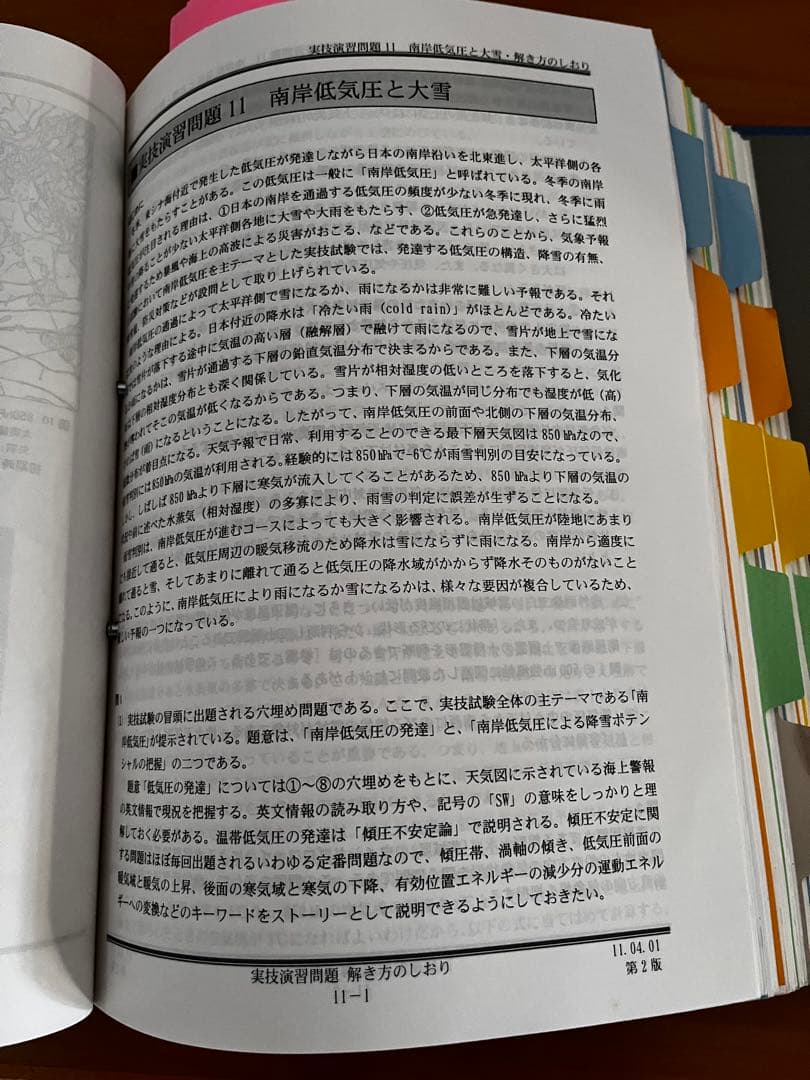 実技演習問題11 南岸低気圧と大雪・解き方のしおり
■実技演習問題11 南岸低気圧と大雪
東シナ海付近で発生した低気圧が発達しながら日本の南岸沿いを北東進し、太平洋側の各
大雪をもたらすことがある。この低気圧は一般に「南岸低気圧」と呼ばれている。冬季の南岸
が注目される理由は、①日本の南岸を通過する低気圧の頻度が少ない冬季に現れ、冬季に雨
ることが少ない太平洋側各地に大雪や大雨をもたらす、②低気圧が急発達し、さらに猛烈
するため暴風や海上の高波による災害がおこる、などである。これらのことから、気象予報
において南岸低気圧を主テーマとした実技試験では、発達する低気圧の構造、降雪の有無、
防災対策などが設問として取り上げられている。
低気圧の通過によって太平洋側で雪になるか、雨になるかは非常に難しい予報である。それ
のような理由による。日本付近の降水は「冷たい雨（cold rain）」がほとんどである。冷たい
は雪片が落下する途中に気温の高い層（融解層）で融けて雨になるので、雪片が地上で雪にな
になるかは、雪片が通過する下層の鉛直気温分布で決まるからである。また、下層の気温分
下層の相対湿度分布とも深く関係している。雪片が相対湿度の低いところを落下すると、気化
われてそこの気温が低くなるからである。つまり、下層の気温が同じ分布でも湿度が低（高）
ば雪（雨）になるということになる。したがって、南岸低気圧の前面や北側の下層の気温分布、
分布が着目点になる。天気予報で日常、利用することのできる最下層天気図は850hPaなので、
判別には850hPaの気温が利用される。経験的には850hPaで-6℃が雨雪判別の目安になっている。
し、しばしば850hPaより下層に寒気が流入してくることがあるため、850hPaより下層の気温の
や前に述べた水蒸気（相対湿度）の多寡により、雨雪の判定に誤差が生ずることになる。
雨雪判別は、南岸低気圧が進むコースによっても大きく影響される。南岸低気圧が陸地にあまり
接近して通ると、低気圧周辺の暖気移流のため降水は雪にならずに雨になる。南岸から適度に
れて通ると雪、そしてあまりに離れて通ると低気圧の降水域がかからず降水そのものがないこと
なる。このように、南岸低気圧により雨になるか雪になるかは、様々な要因が複合しているため、
しい予報の一つになっている。
問1
(1) 実技試験の冒頭に出題される穴埋め問題である。ここで、実技試験全体の主テーマである「南
岸低気圧」が提示されている。題意は、「南岸低気圧の発達」と、「南岸低気圧による降雪ポテン
シャルの把握」の二つである。
題意「低気圧の発達」については①～⑧の穴埋めをもとに、天気図に示されている海上警報
の英文情報で現況を把握する。英文情報の読み取り方や、記号の「SW」の意味をしっかりと理
解しておく必要がある。温帯低気圧の発達は「傾圧不安定論」で説明される。傾圧不安定に関
する問題はほぼ毎回出題されるいわゆる定番問題なので、傾圧帯、渦軸の傾き、低気圧前面の
暖気域と暖気の上昇、後面の寒気域と寒気の下降、有効位置エネルギーの減少分の運動エネル
ギーへの変換などのキーワードをストーリーとして説明できるようにしておきたい。
実技演習問題 解き方のしおり
11－1
11.04.01
第2版